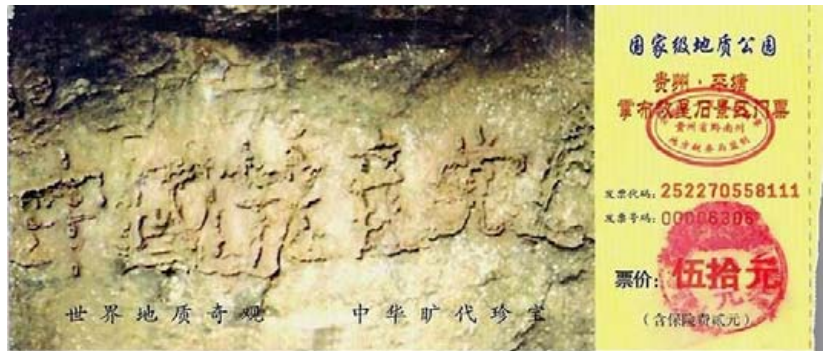 中國共产党亡
世界地质奇观 中华旷代珍宝
国家级地质公园
贵州·平塘
掌布救星石景区门票
贵州省黔南州
地方税务局监制
发票代码：252270558111
发票号码：00006306
票价：伍拾元
（含保险费贰元）